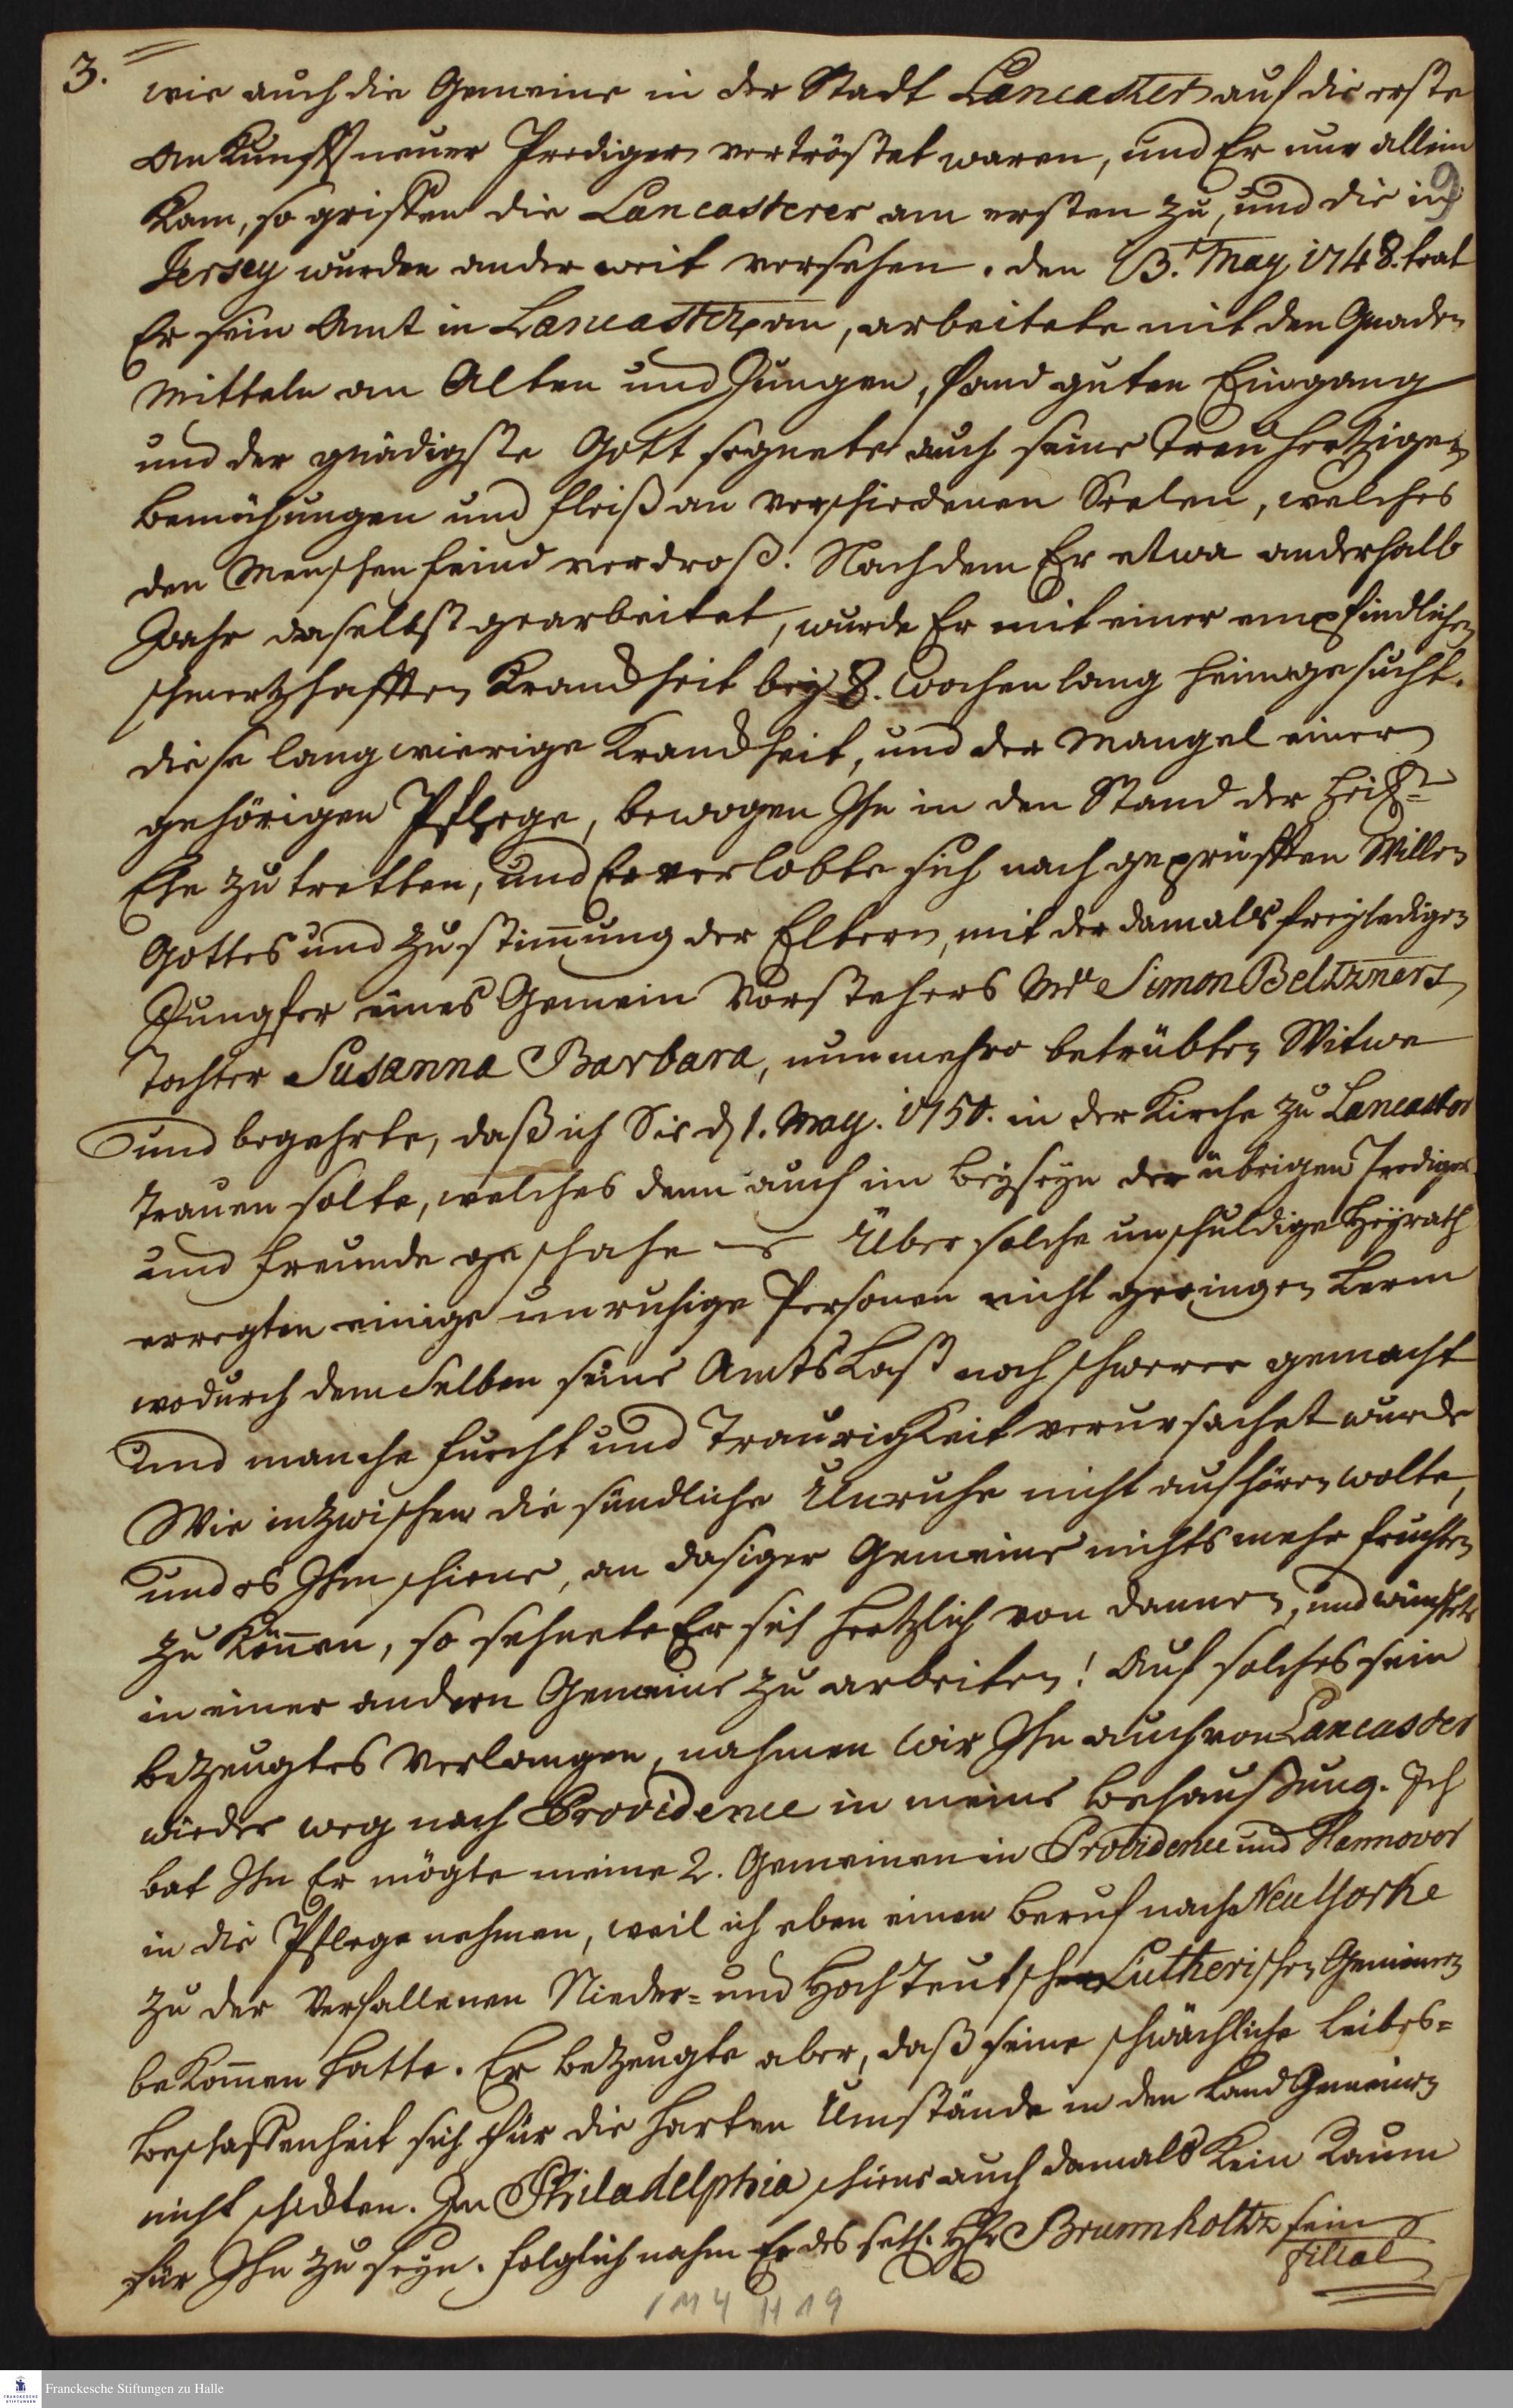 3.
wie auch die Gemeine in der Stadt Lancaster auf die erste
Ankunfft neuer Prediger vertröstet waren, und Er nur allein
9
kam, so griffen die Lancasterer am ersten zu, und die in
Jersey wurden anderweit versehen. den 13. May 1748. trat
Er sein Amt in Lancaster an, arbeitete mit den Gnaden
Mitteln an Alten und Jungen, fand guten Eingang
und der gnädigste Gott segnete auch seine treuhertzigen
Bemühungen und Fleiß an verschiedenen Seelen, welches
den Menschenfeind verdroß. Nachdem Er etwa anderhalb
Jahr daselbst gearbeitet, wurde Er mit einer empfindlichen
schmertzhafften Kranckheit bey 8. Wochen lang heimgesucht.
diese langwierige Kranckheit, und der Mangel einer
gehörigen Pflege, bewogen Ihn in den Stand der
Ehe zu tretten, und Er verlobte sich nach geprüfften Willen
Gottes und Zustim̅ung der Eltern, mit der damals freyledigen
Jungfer eines Gemein Vorstehers Mr Simon Beltzners
Tochter Susanna Barbara, nunmehro betrübten Witwe
und begehrte, daß ich Sie d 1. May. 1750. in der Kirche zu Lancaster
trauen solte, welches denn auch im Beyseyn der übrigen Prediger
und Freunde geschahe Über solche unschuldige Heyrath
erregten einige unruhige Personen nicht geringen Lerm
wodurch demselben seine Amts Last noch schwerer gemacht
und manche Furcht und Traurigkeit verursachet wurde
Wie inzwischen die sündliche Unruhe nicht aufhören wolte,
und es Ihm schiene, an dasiger Gemeine nichts mehr fruchten
zu kön̅en, so sehnete Er sich hertzlich von dannen, und wünschte
in einer andern Gemeine zu arbeiten! Auf solches sein
bezeugtes Verlangen, nahmen wir Ihn auch von Lancaster
wieder weg nach Providence in meine Behausung. Ich
bat Ihn Er mögte meine 2. Gemeinen in Providence und Hannover
in die Pflege nehmen, weil ich eben einen Beruf nach Neu Yorke
zu der Verfallenen Nieder= und Hoch Teutschen Lutherischen Gemeinen
bekom̅en hatte. Er bezeugte aber, daß seine schwächliche Leibes=
beschaffenheit sich für die harten Umstände in den Land Gemeinen
nicht schickten. In Philadelphia schiene auch damals kein Raum
für Ihn zu seyn. folglich nahm Er des seel. Hr Brunnholtz sein
Filial
1 M 4 H 19
Franckesche Stiftungen zu Halle
FRANCKESCHE STIFTUNGEN